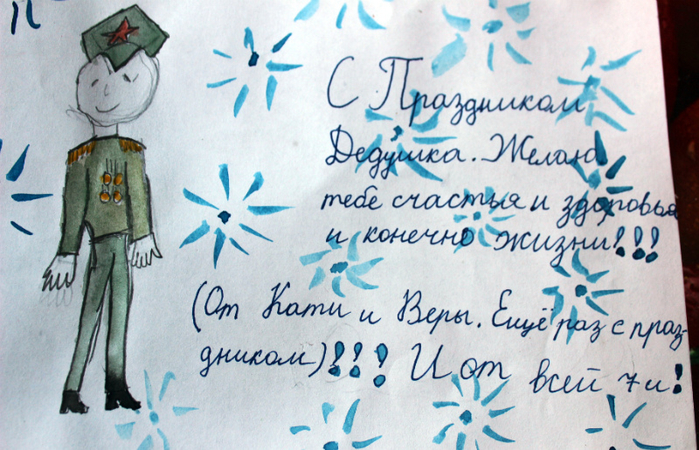 С Праздником
Дедушка. Желаю
тебе счастья и здоровья
и конечно жизни!!!
(От Кати и Веры. Ещё раз с праз-
дником)!!! И от всей 7и!